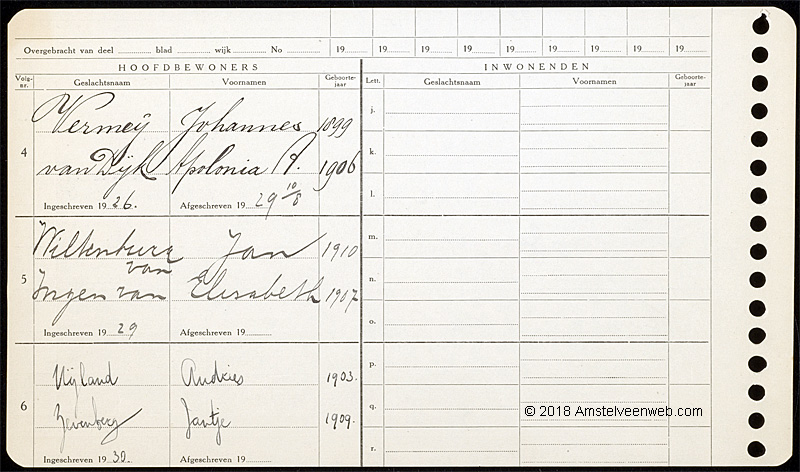 Overgebracht van deel ............ blad ............ wijk ............ No ............ 19...... 19...... 19...... 19...... 19...... 19...... 19...... 19...... 19......
HOOFDBEWONERS INWONENDEN
Volg-nr. Geslachtsnaam Voornamen Geboorte-jaar Lett. Geslachtsnaam Voornamen Geboorte-jaar
Vermeij Johannes 1899 j.
4 van Dijk Apolonia P. 1906 k.
Ingeschreven 1926. Afgeschreven 1929 10/8 l.
Wiltenburg Jan 1910 m.
van
5 Ingen van Elisabeth 1907 n.
Ingeschreven 1929 Afgeschreven 19......... o.
Nijland Andries 1903. p.
6 Zevenberg Jantje 1909. q.
© 2018 Amstelveenweb.com
Ingeschreven 1930. Afgeschreven 19......... r.